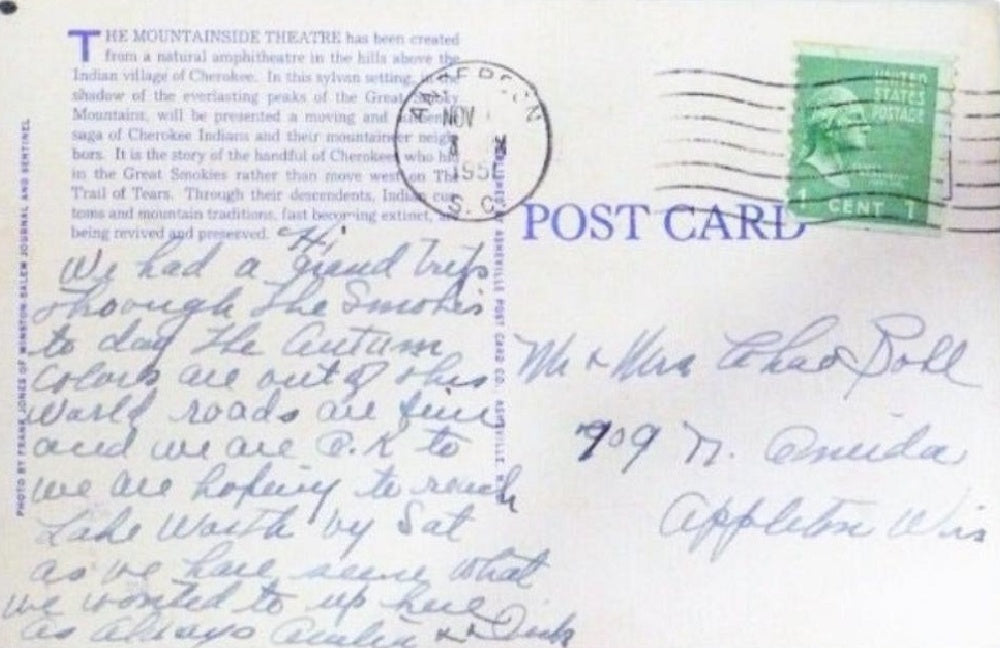 THE MOUNTAINSIDE THEATRE has been created
from a natural amphitheatre in the hills above the
Indian village of Cherokee. In this sylvan setting, in the
shadow of the everlasting peaks of the Great Smoky
Mountains, will be presented a moving and
saga of Cherokee Indians and their mountaineer neigh
bors. It is the story of the handful of Cherokees who hid
in the Great Smokies rather than move west on The
Trail of Tears. Through their descendents, Indian cus
toms and mountain traditions, fast becoming extinct, a
being revived and preserved.
Hi
We had a grand trip
through the Smokies
to day The Autum
colors are out of this
world roads are fine
and we are O.K to
we are hoping to reach
Lake Worth by Sat
as we have seen what
we wanted to up here
as always & Dick
PHOTO BY FRANK JONES OF WINSTON-SALEM JOURNAL AND SENTINEL
ASHEVILLE POST CARD CO. ASHEVILLE
NOV
195
S. C.
UNITED
STATES
POSTAGE
1 CENT 1
POST CARD
Mr & Mrs Chas
909 N. Oneida
Appleton Wis